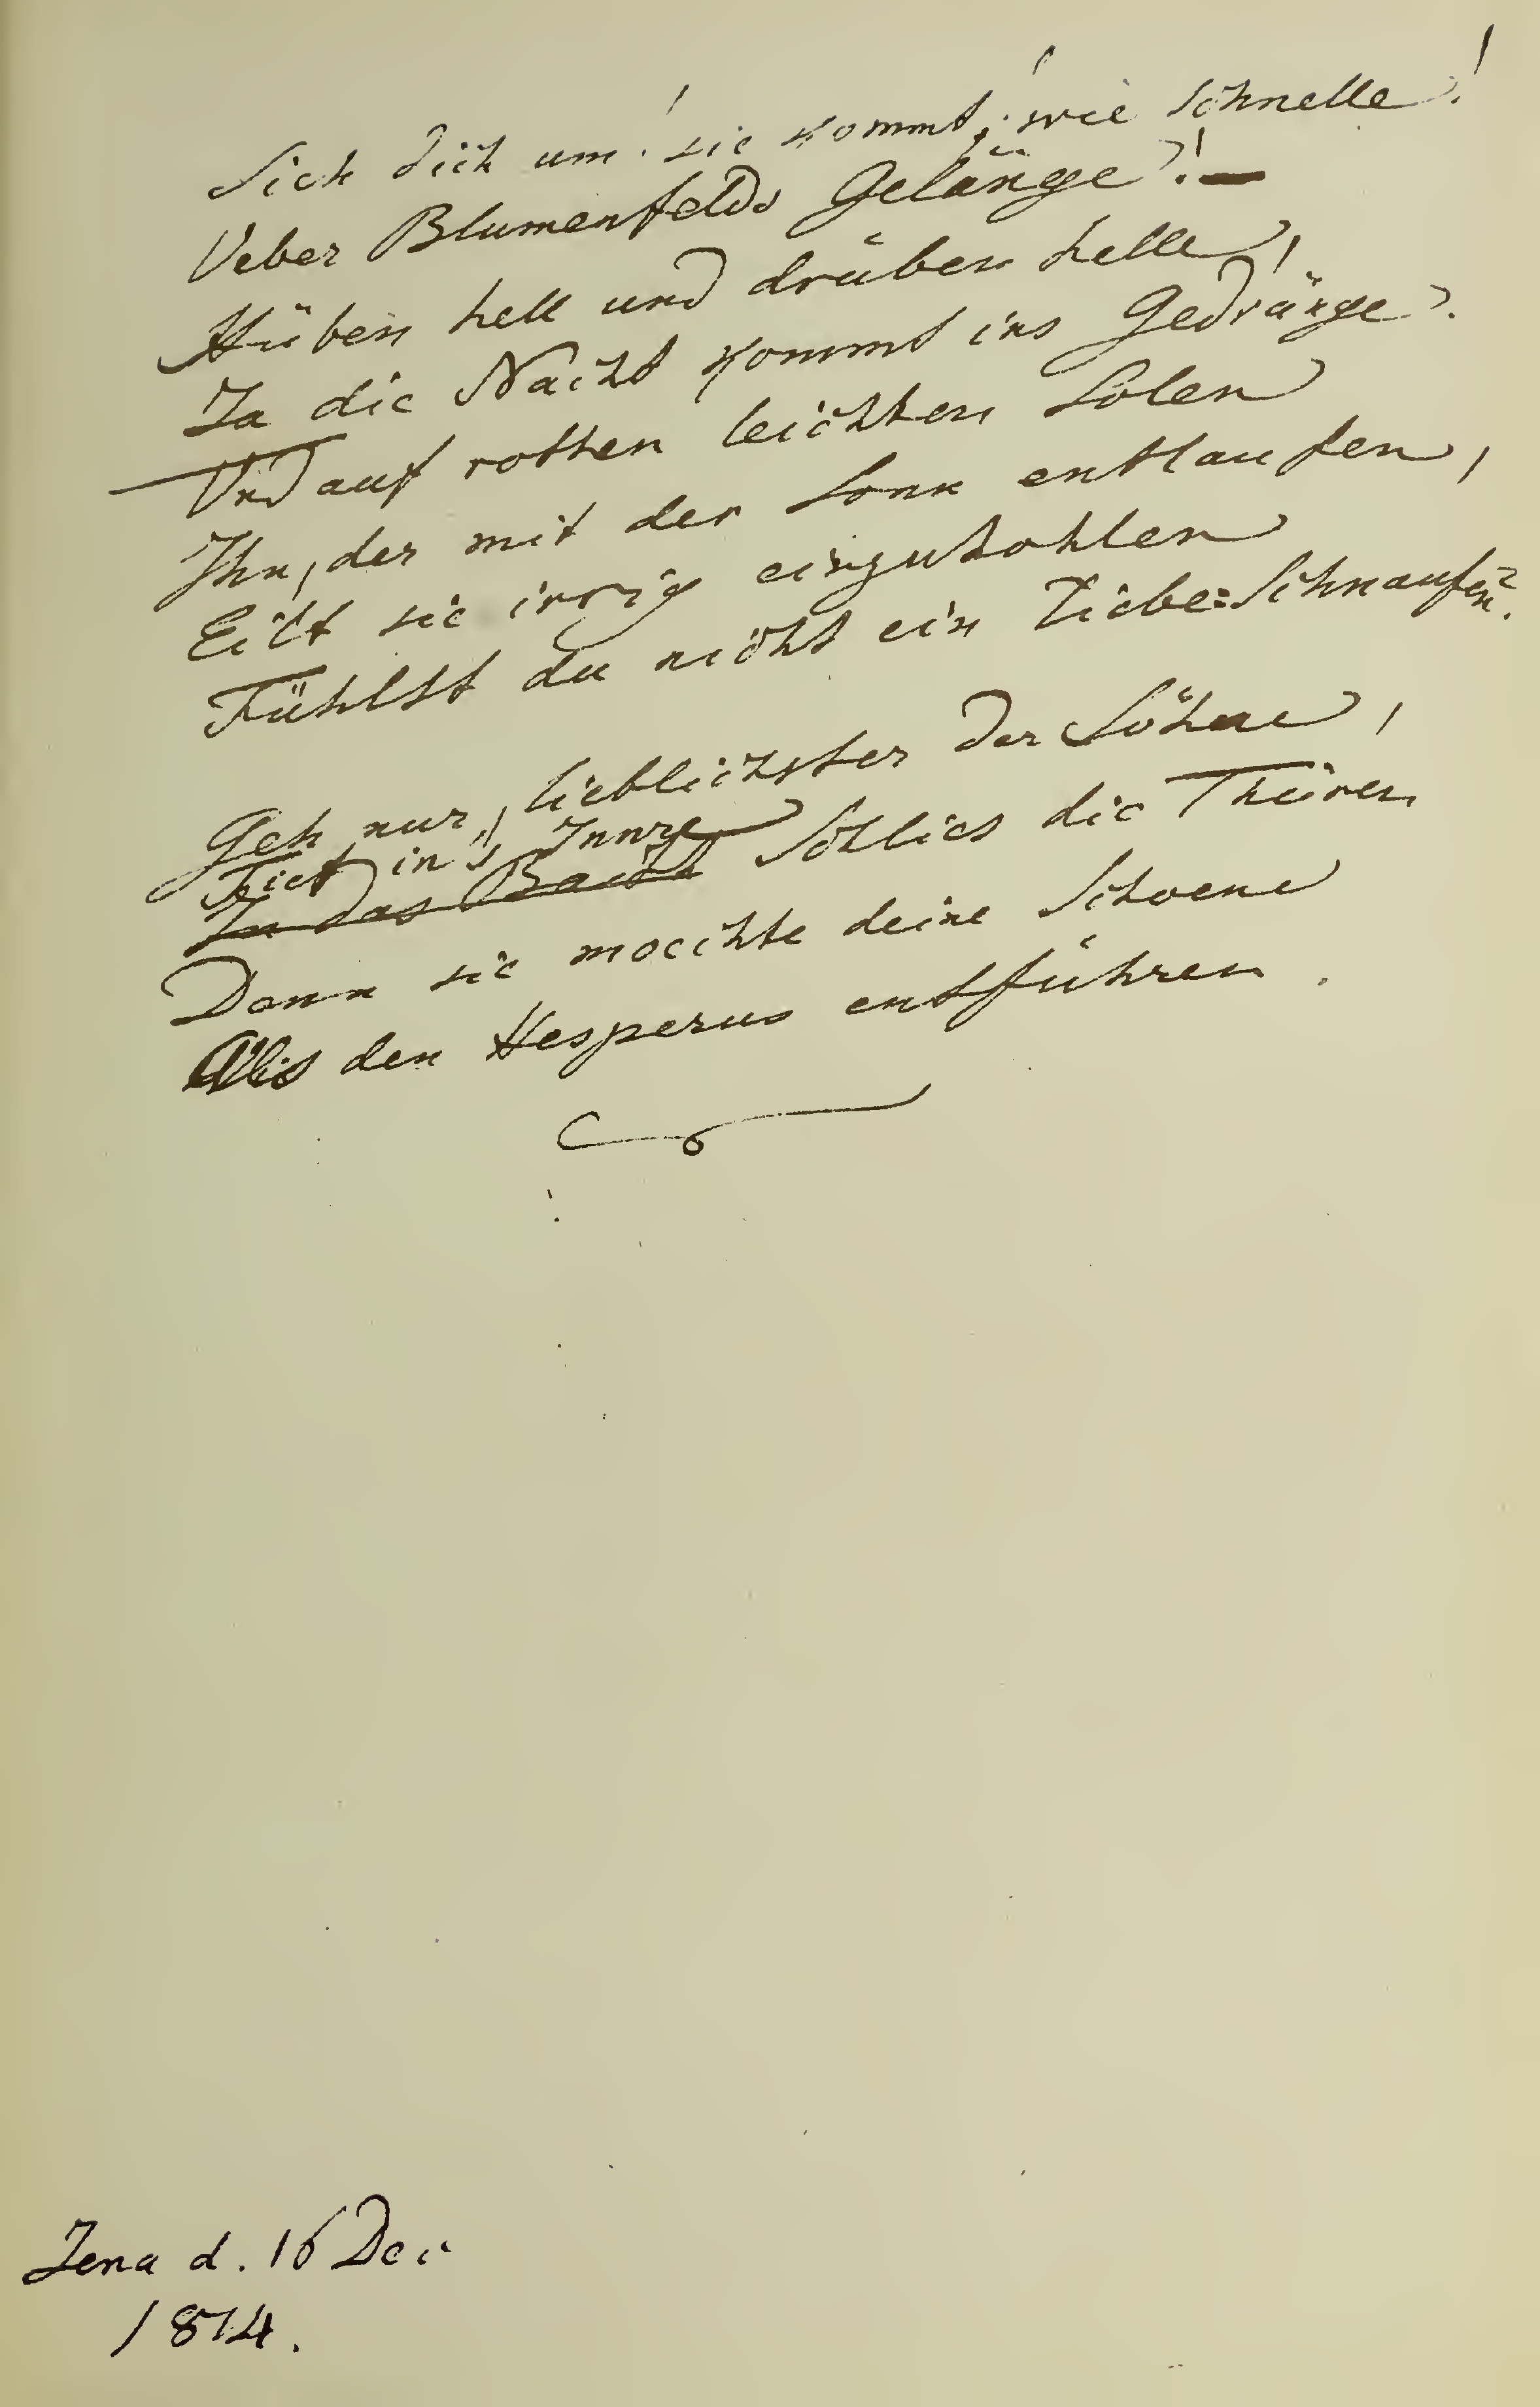 Sieh dich um! sie kommt! wie schnelle!
Ueber Blumenfelds Gelänge! —
Hüben hell und drüben helle,
Ja die Nacht kommt ins Gedränge.
Und auf rothen leichten Solen
Ihn, der mit der Sonn entlaufen,
Eilt sie irrig einzuhohlen
Fühlst du nicht ein Liebe=Schnaufen?
Geh nur, lieblichster der Söhne,
Tief in's Innre
In das Bacht Schlies die Thüren
Denn sie moechte deine Schoene
Als den Hesperus entführen.
Jena d. 16 Dec
1814.